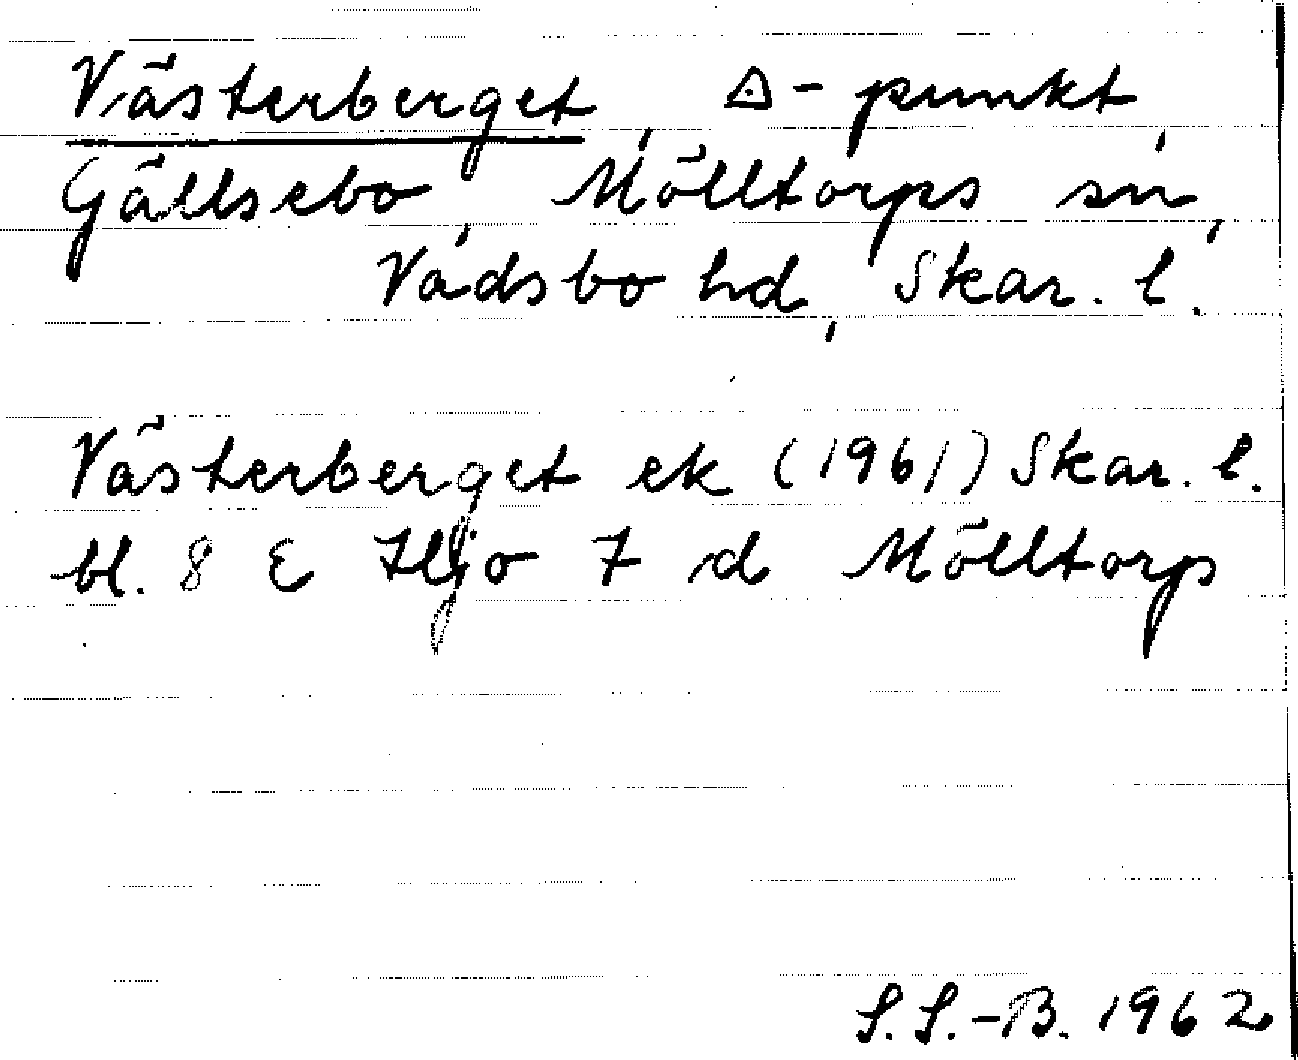 Västerberget, △-punkt,
Gällsebo, Mölltorps sn,
Vadsbo hd, Skar. l.
Västerberget ek (1961) Skar. l.
bl. 8 E Hjo 7 d Mölltorp
S.S.-B. 1962